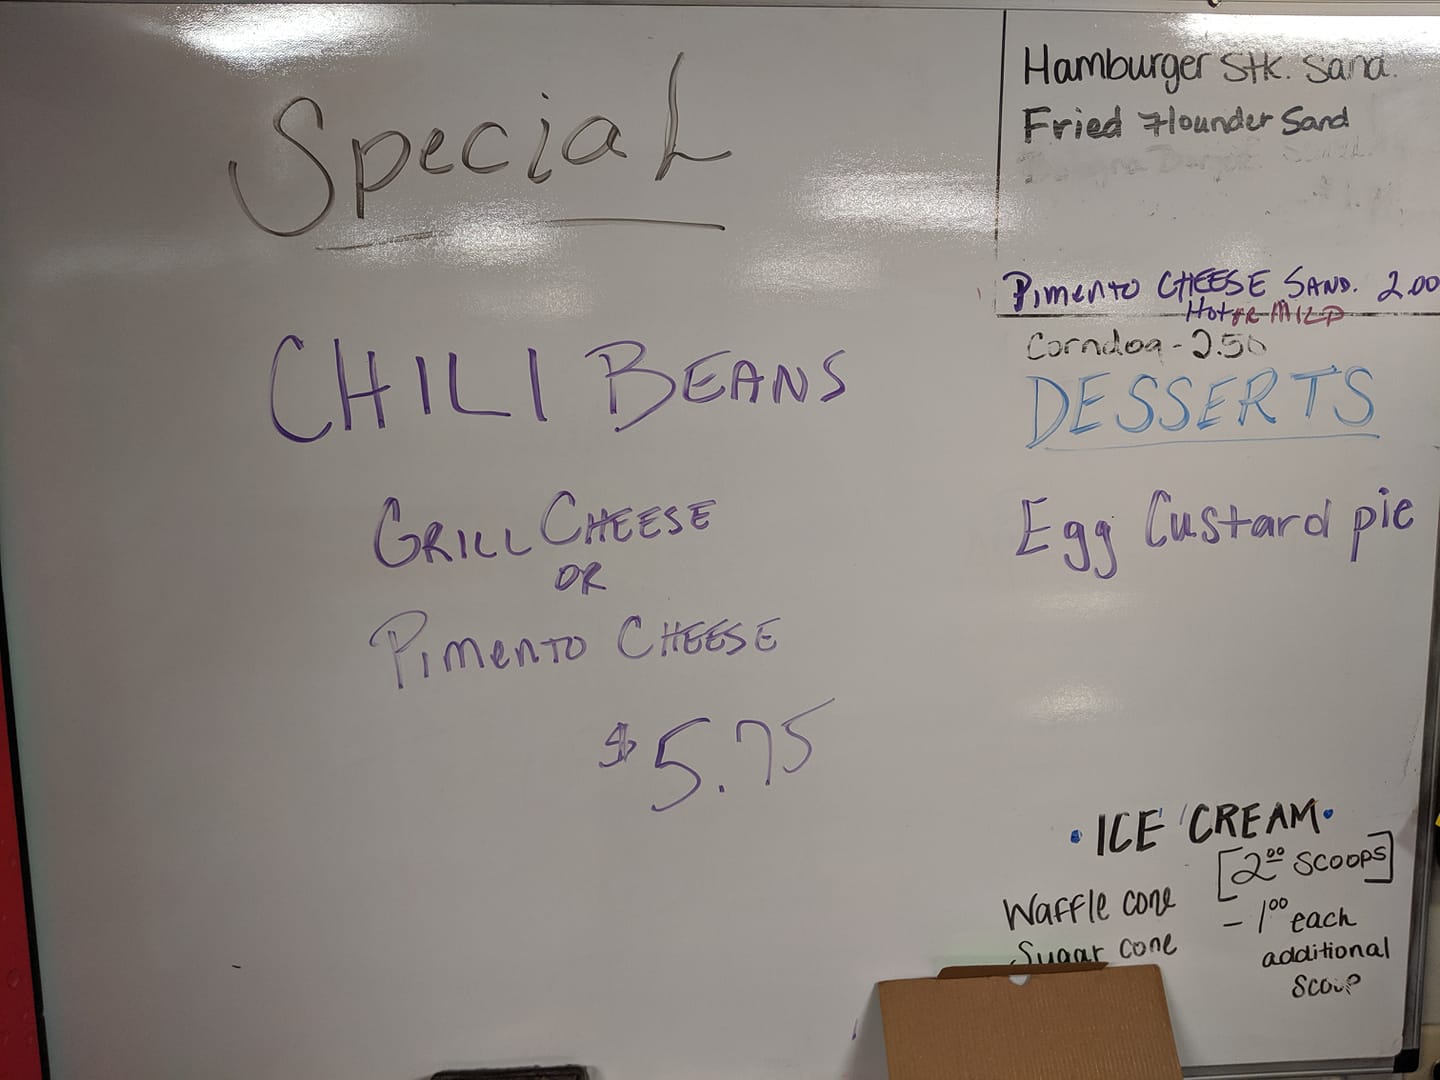 Special
CHILI BEANS
GRILL CHEESE
OR
PIMENTO CHEESE
$5.75
Hamburger Stk. Sand.
Fried Flounder Sand
PIMENTO CHEESE SAND. 2.00
Hot OR MILD
Corndog - 2.50
DESSERTS
Egg Custard pie
• ICE CREAM •
[2.00 SCOOPS]
Waffle cone
- 1.00 each
Sugar cone
additional
scoop